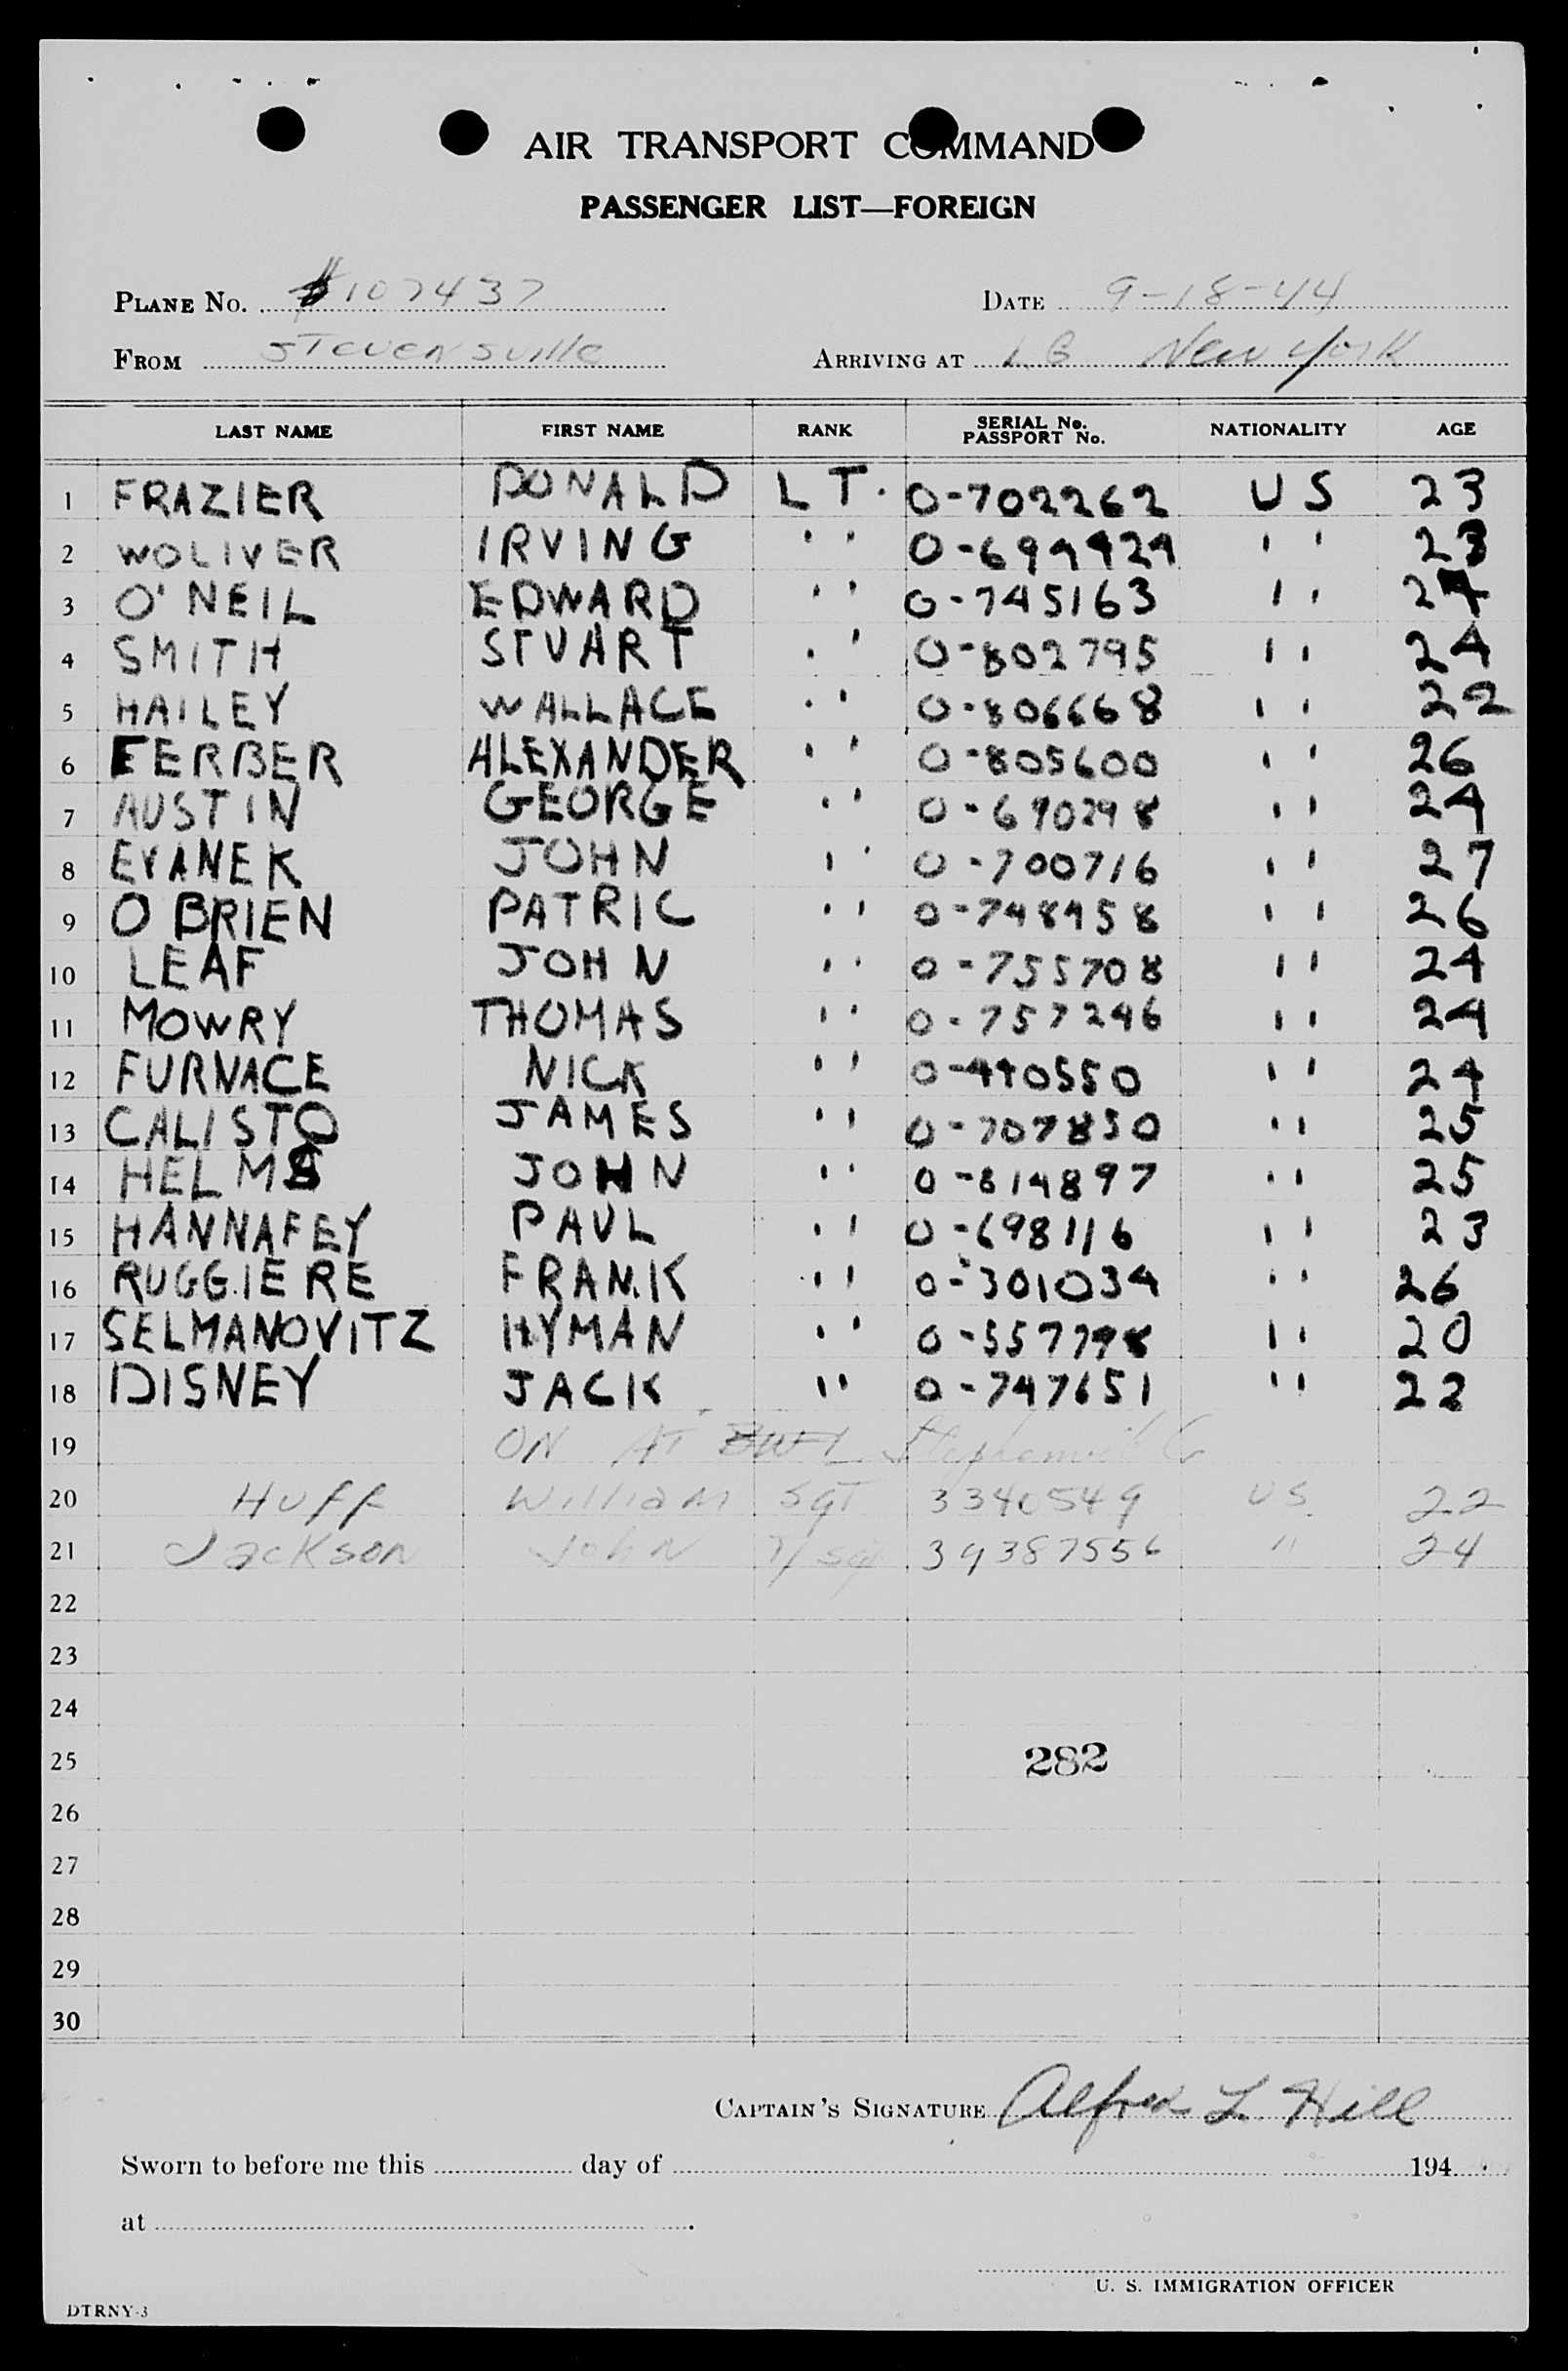 AIR TRANSPORT COMMAND
PASSENGER LIST—FOREIGN
PLANE No. 107437 DATE 9-18-44
FROM Stevensville ARRIVING AT New York
LAST NAME FIRST NAME RANK SERIAL No. PASSPORT No. NATIONALITY AGE
1 FRAZIER DONALD LT. O-702262 US 23
2 WOLIVER IRVING '' O-699929 '' 23
3 O'NEIL EDWARD '' O-745163 '' 24
4 SMITH STUART '' O-802795 '' 24
5 HAILEY WALLACE '' O-806668 '' 22
6 FERBER ALEXANDER '' O-805600 '' 26
7 AUSTIN GEORGE '' O-690298 '' 24
8 EVANEK JOHN '' O-700716 '' 27
9 O BRIEN PATRIC '' O-748958 '' 26
10 LEAF JOHN '' O-755708 '' 24
11 MOWRY THOMAS '' O-757246 '' 24
12 FURNACE NICK '' '' 24
13 CALISTO JAMES '' O-707830 '' 25
14 HELMS JOHN '' O-814897 '' 25
15 HANNAFEY PAUL '' O-698116 '' 23
16 RUGGIERE FRANK '' O-301034 '' 26
17 SELMANOVITZ HYMAN '' O-557798 '' 20
18 DISNEY JACK '' O-747651 '' 22
19 ON AT
20 Huff William SGT 3340549 US 22
21 Jackson John T/Sgt 39387556 " 24
22
23
24
25 282
26
27
28
29
30
CAPTAIN'S SIGNATURE Alfred L. Hill
Sworn to before me this day of 194
at
U. S. IMMIGRATION OFFICER
DTRNY-3